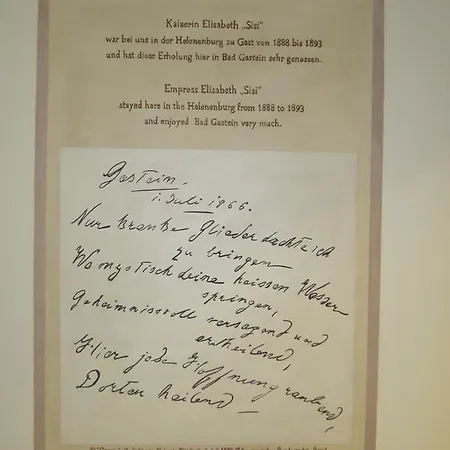 Kaiserin Elisabeth „Sisi"
war bei uns in der Helenenburg zu Gast von 1888 bis 1893
und hat diese Erholung hier in Bad Gastein sehr genossen.
Empress Elisabeth „Sisi"
stayed here in the Helenenburg from 1888 to 1893
and enjoyed Bad Gastein very much.
Gastein.
1. Juli 1866.
Nur kranke Glieder dachte ich
zu bringen
Wo mystisch deine heissen Wasser
springen,
Geheimnissvoll versagend und
ertheilend,
Hier jede Hoffnung raubend,
Dorten heilend –